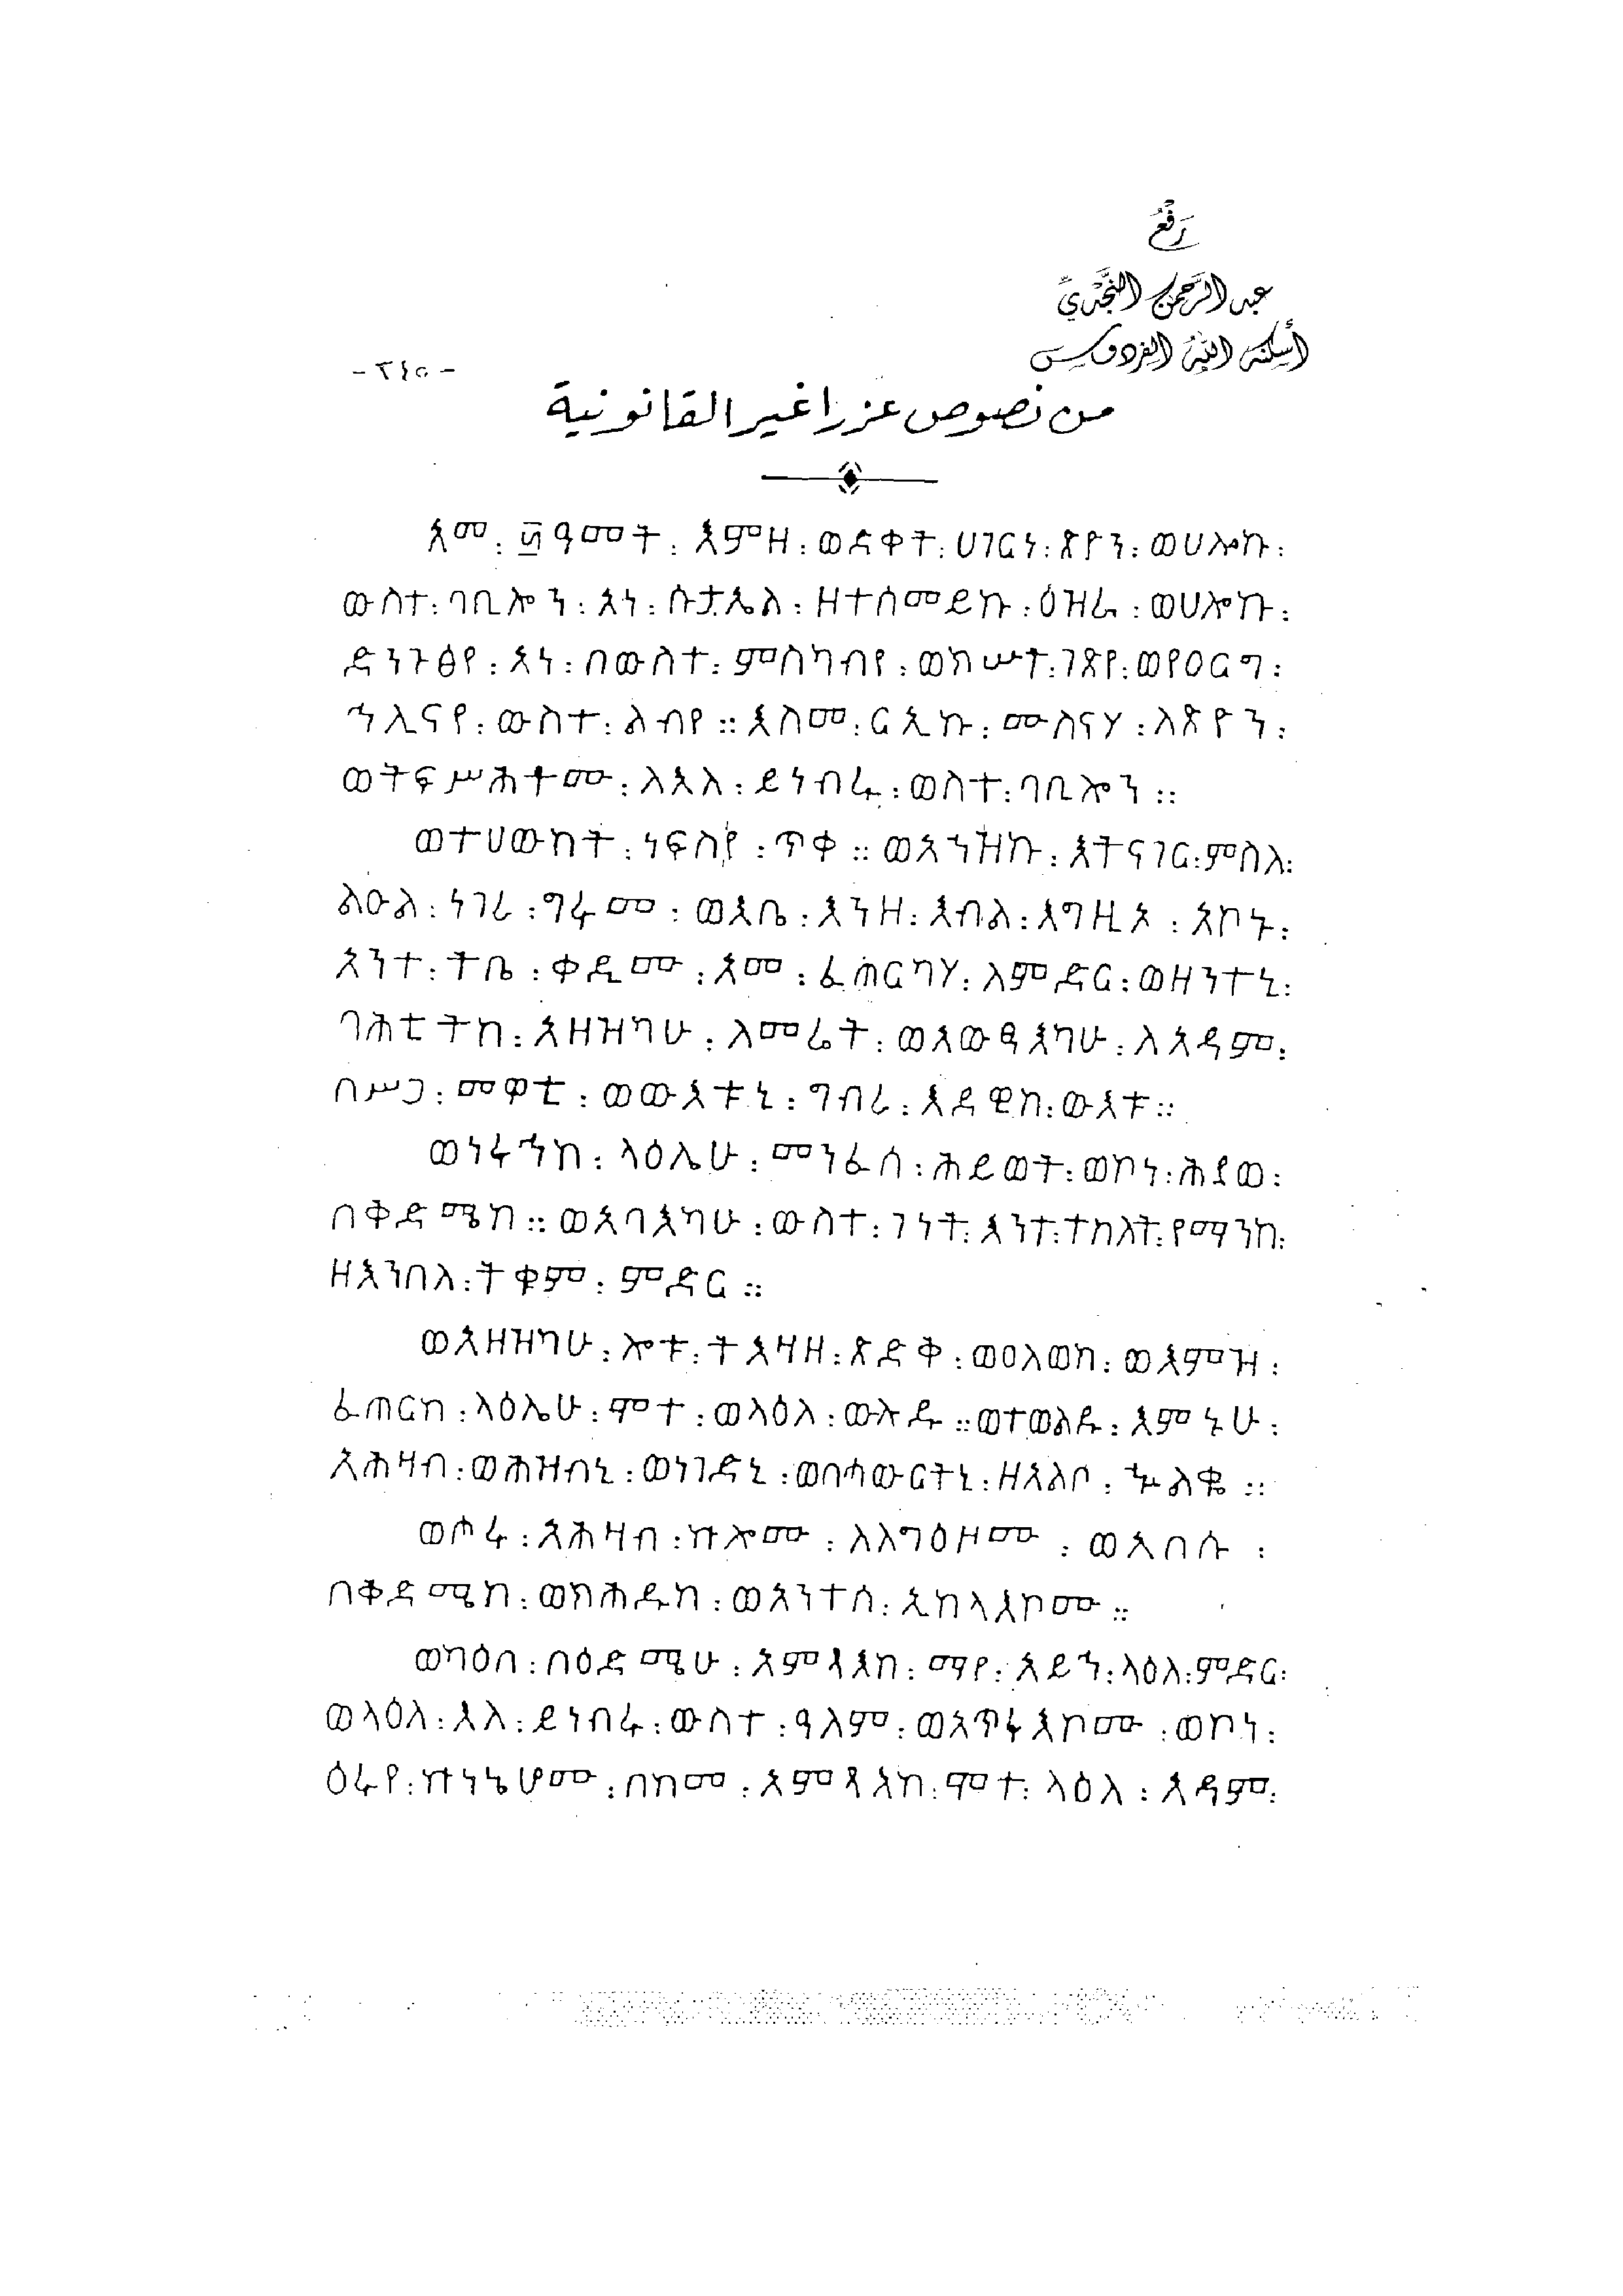 رَفْعُ
عبد الرَّحمن النَّجْديِّ
أسكنه اللّٰه الفردوس
- ٢٤٥ -
من نصوص عزرا غير القانونية
አመ፡ ፴ዓመት፡ እምዘ፡ ወድቀት፡ ሀገርነ፡ ጽዮን፡ ወሀሎኩ፡
ውስተ፡ ባቢሎን፡ አነ፡ ሱታኤል፡ ዘተሰመይኩ፡ ዕዝራ፡ ወሀሎኩ፡
ድንጉፅየ፡ አነ፡ በውስተ፡ ምስካብየ፡ ወክሡት፡ ገጽየ፡ ወየዐርግ፡
ኅሊናየ፡ ውስተ፡ ልብየ። እስመ፡ ርኢኩ፡ ሙስናሃ፡ ለጽዮን፡
ወትፍሥሕቶሙ፡ ለእለ፡ ይነብሩ፡ ወስተ፡ ባቢሎን።
ወተሀውከት፡ ነፍስየ፡ ጥቀ። ወአኀዝኩ፡ እትናገር፡ ምስለ፡
ልዑል፡ ነገረ፡ ግሩመ፡ ወእቤ፡ እንዘ፡ እብል፡ እግዚኦ፡ አኮኑ፡
አንተ፡ ትቤ፡ ቀዲሙ፡ አመ፡ ፈጠርካሃ፡ ለምድር፡ ወዘንተኒ፡
ባሕቲትከ፡ አዘዝካሁ፡ ለመሬት፡ ወአውፃእካሁ፡ ለአዳም፡
በሥጋ፡ መዋቲ፡ ወውእቱኒ፡ ግብረ፡ እደዊከ፡ ውእቱ።
ወነፋኅከ፡ ላዕሌሁ፡ መንፈሰ፡ ሕይወት፡ ወኮነ፡ ሕያወ፡
በቅድሜከ። ወአባእካሁ፡ ውስተ፡ ገነት፡ እንተ፡ ተከለት፡ የማንከ፡
ዘእንበለ፡ ትቁም፡ ምድር።
ወአዘዝካሁ፡ ሎቱ፡ ትእዛዘ፡ ጽድቅ፡ ወዐለወከ፡ ወእምዝ፡
ፈጠርከ፡ ላዕሌሁ፡ ሞተ፡ ወላዕለ፡ ውሉዱ። ወተወልዱ፡ እምኔሁ፡
አሕዛብ፡ ወሕዝብኒ፡ ወነገድኒ፡ ወበሓውርትኒ፡ ዘአልቦ፡ ኍልቈ።
ወሖሩ፡ አሕዛብ፡ ኵሎሙ፡ ለለግዕዞሙ፡ ወአበሱ፡
በቅድሜከ፡ ወክሕዱከ፡ ወአንተሰ፡ ኢከላእኮሙ።
ወካዕበ፡ በዕድሜሁ፡ አምጻእከ፡ ማየ፡ አይኅ፡ ላዕለ፡ ምድር፡
ወላዕለ፡ እለ፡ ይነብሩ፡ ውስተ፡ ዓለም፡ ወአጥፋእኮሙ፡ ወኮነ፡
ዕሩየ፡ ኵነኔሆሙ፡ በከመ፡ አምጻእከ፡ ሞተ፡ ላዕለ፡ አዳም፡